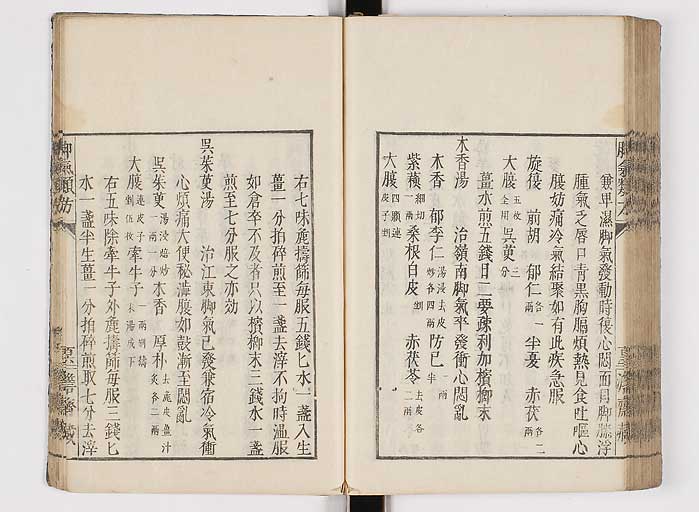 兼卑濕脚氣發動時復心悶面目脚膝浮
腫氣乏唇口青黒胸膈煩熱見食吐嘔心
腹妨痛冷氣結聚如有此疾急服
旋復 前胡 郁仁各一兩 半夏 赤茯各二兩
大腹五枚全用 吳茰三分
薑水煎五錢日二要疎利加檳榔末
木香湯 治嶺南脚氣卒發衝心悶亂
木香 郁李仁湯浸去皮炒各四兩 防已一兩半
紫蘓細切一兩 桑根白皮剉二兩 赤茯苓去皮各二兩
大腹四顆連皮子剉
右七味麁擣篩每服五錢匕水一盞入生
薑一分拍碎煎至一盞去滓不拘時温服
如倉卒不及者只以檳榔末三錢水一盞
煎至七分服之亦効
吳茱茰湯 治江東脚氣已發兼宿冷氣衝
心煩痛大便秘濇腹如鼓漸至悶亂
吳茱茰湯浸焙炒一兩一分 木香 厚朴去麁皮薑汁炙各二兩
大腹連皮子剉伍枚 牽牛子一兩別擣末湯成下
右五味除牽牛子外麁擣篩每服三錢匕
水一盞半生薑一分拍碎煎取七分去滓
脚氣類方